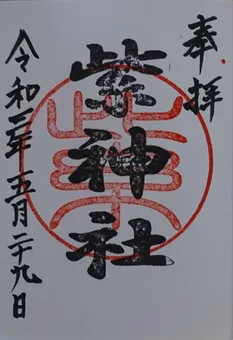 奉拝
柴神社
令和二年 五月二十九日